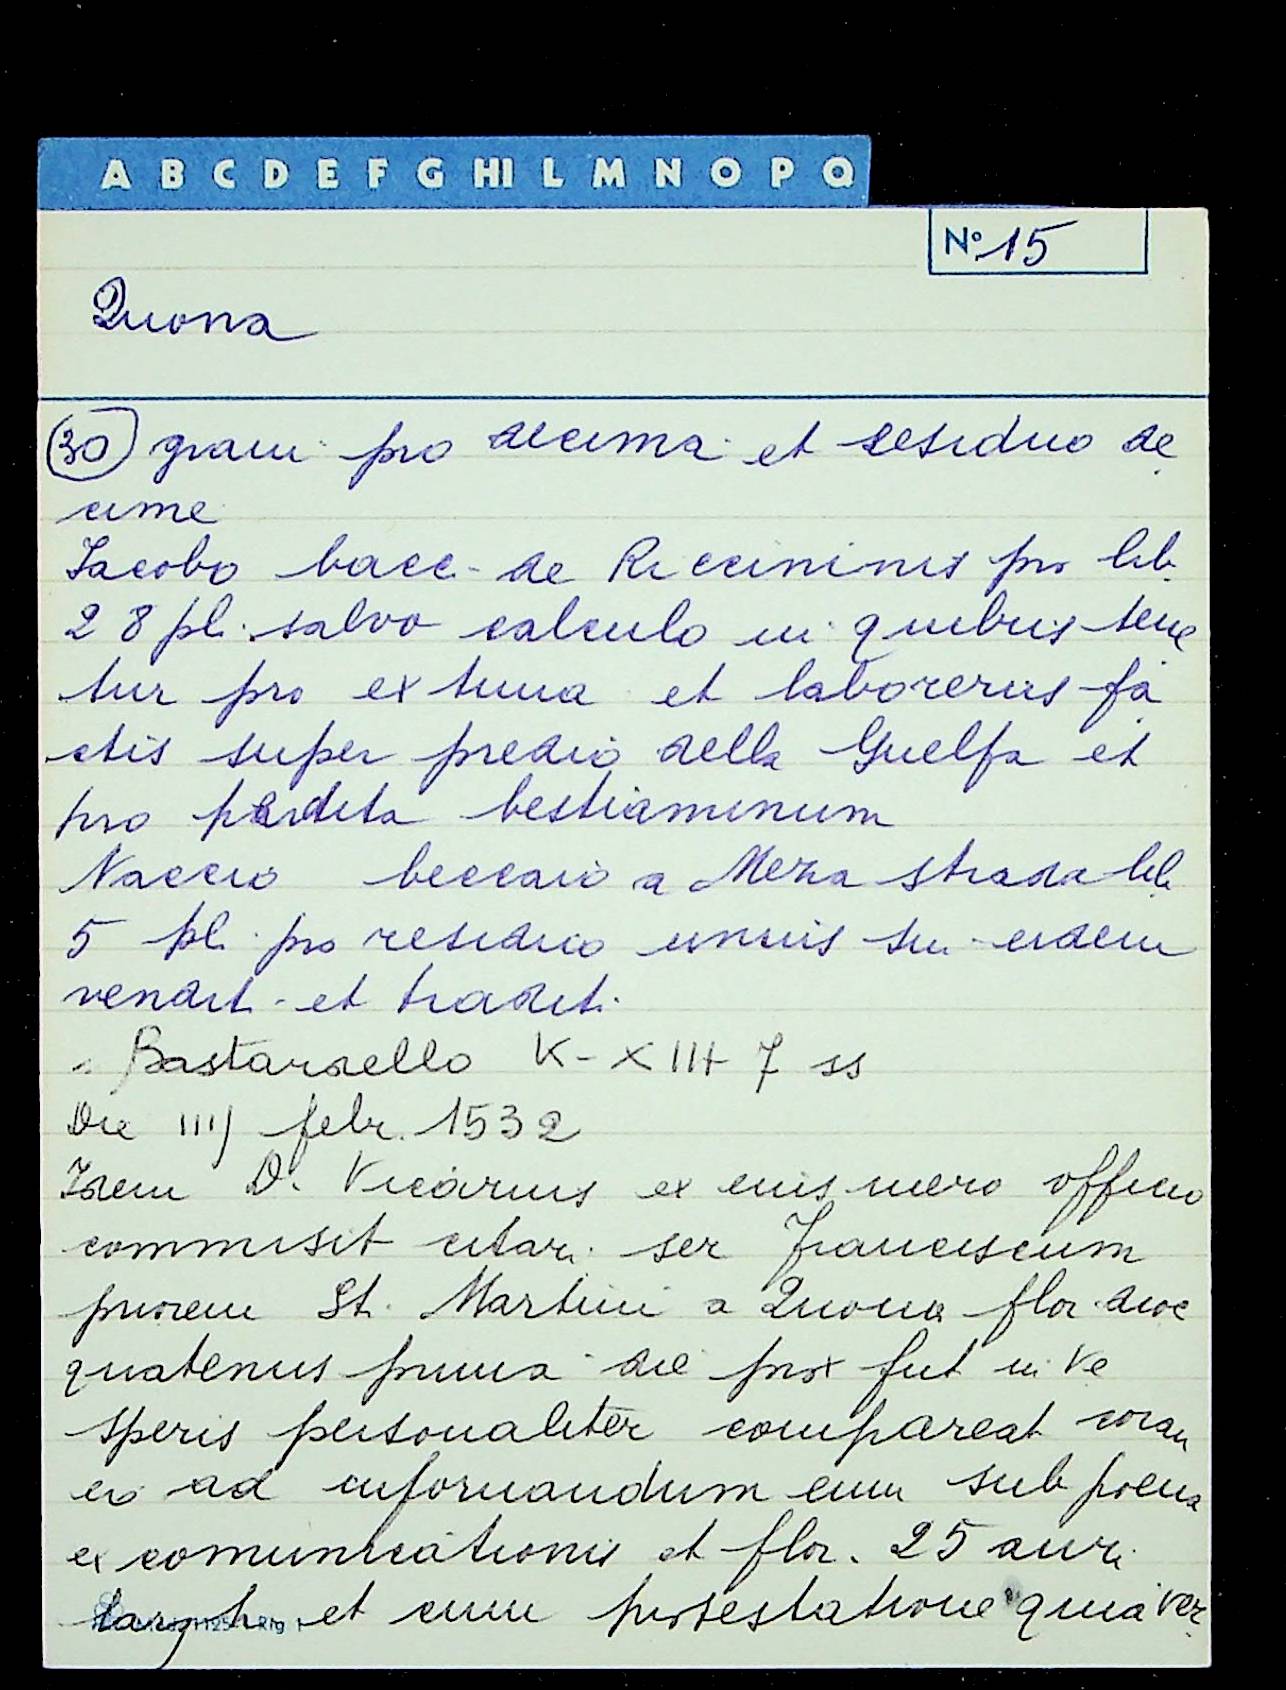 A B C D E F G HI L M N O P Q
N° 15
Quona
(30) grani pro decima et residuo de
cime
Iacobo bacc. de Riccininis pro lib.
28 pl. salvo calculo in quibus tene
tur pro extima et laboreriis fa
ctis super predio della Guelfa et
pro perdita bestiaminum
Naccio beccaio a Meza strada lib.
5 pl. pro residuo unius eidem
vendit. et tradit.
Bastardello K-XIII 7 ss
Die IIIJ febr. 1532
Idem D. Vicarius ex eius mero officio
commisit citari ser Franciscum
priorem St. Martini a Quona flor. dioc
quatenus prima die prox fut in Ve
speris personaliter compareat coram
eo ad informandum eum sub poena
excomunicationis et flor. 25 auri
larg h et cum protestatione quia ver